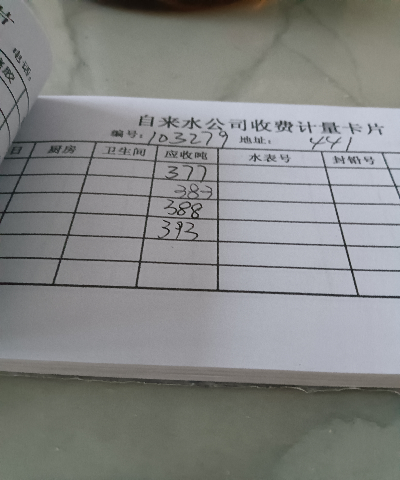 片
电话:
自来水公司收费计量卡片
编号: 103279 地址: 441
日 厨房 卫生间 应收吨 水表号 封铅号
377
383
388
393